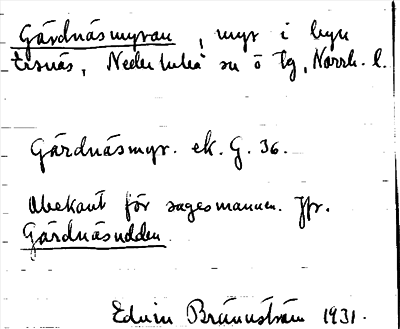 Gårdnäsmyran, myr i byn
Ersnäs, Nederluleå sn ö tg, Norrb. l.
Gårdnäsmyr. ek. G. 36.
Obekant för sagesmannen. Jfr.
Gårdnäsudden.
Edvin Brännström 1931.